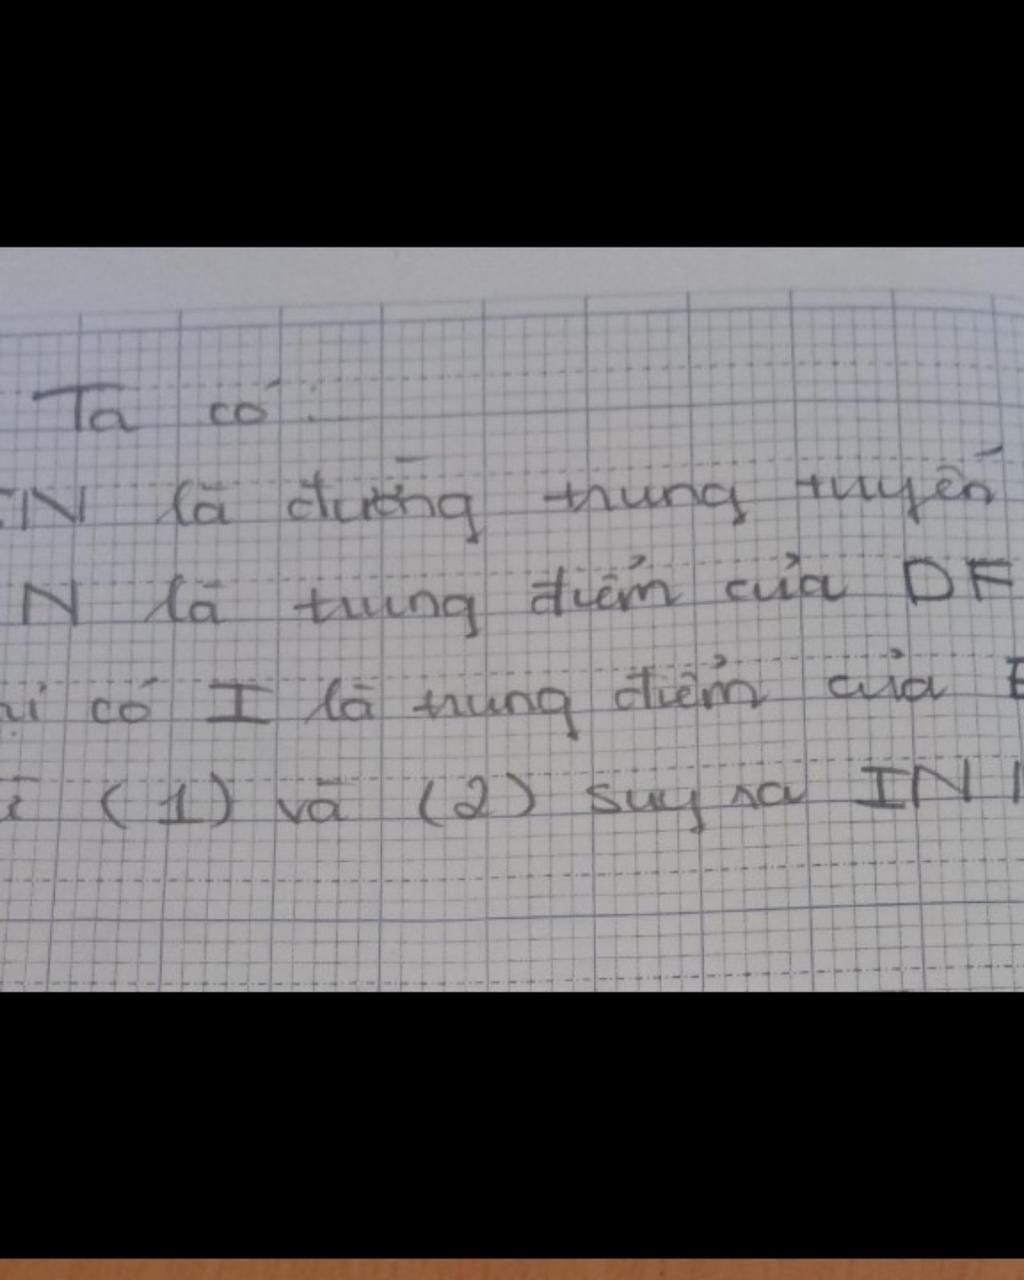 Ta có:
EN là đường trung tuyến
N là trung điểm của DF
có I là trung điểm của E
(1) và (2) suy ra IN